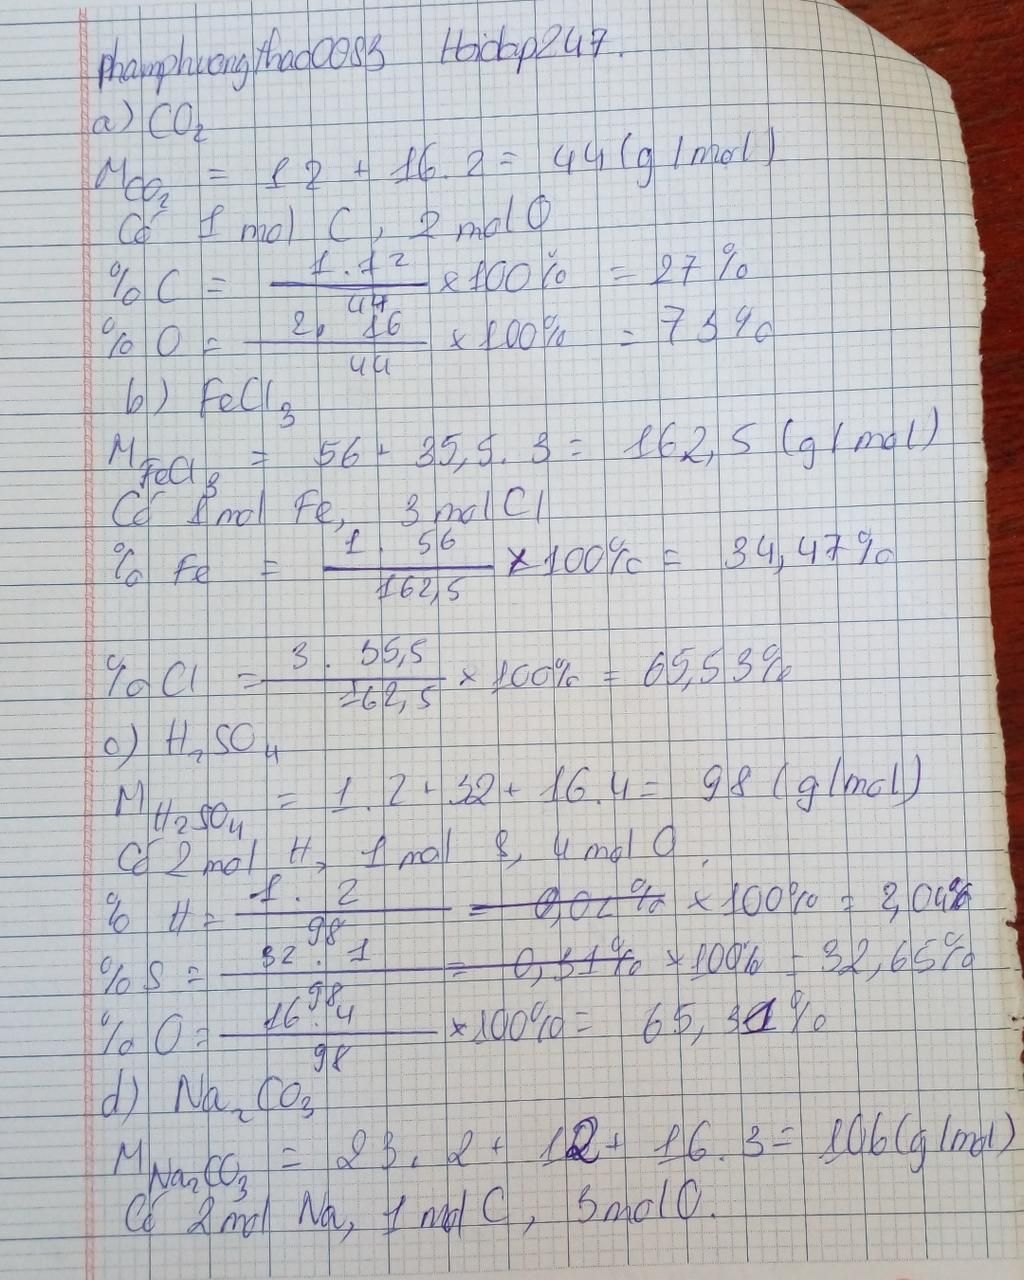 phamphuongthao0083 Hoidap247.
a) CO₂
M_CO₂ = 12 + 16.2 = 44 (g/mol)
Có 1 mol C, 2 mol O
%C = 1.12/44 × 100% = 27%
%O = 2.16/44 × 100% = 73%
b) FeCl₃
M_FeCl₃ = 56 + 35,5.3 = 162,5 (g/mol)
Có 1 mol Fe, 3 mol Cl
% Fe = 1.56/162,5 × 100% = 34,47%
%Cl = 3.35,5/162,5 × 100% = 65,53%
c) H₂SO₄
M_H₂SO₄ = 1.2 + 32 + 16.4 = 98 (g/mol)
Có 2 mol H, 1 mol S, 4 mol O.
% H = 1.2/98 = 0,02% × 100% = 2,04%
%S = 32.1/98 = 0,31% × 100% = 32,65%
%O = 16.4/98 × 100% = 65,31%
d) Na₂CO₃
M_Na₂CO₃ = 23.2 + 12 + 16.3 = 106 (g/mol)
Có 2 mol Na, 1 mol C, 3 mol O.